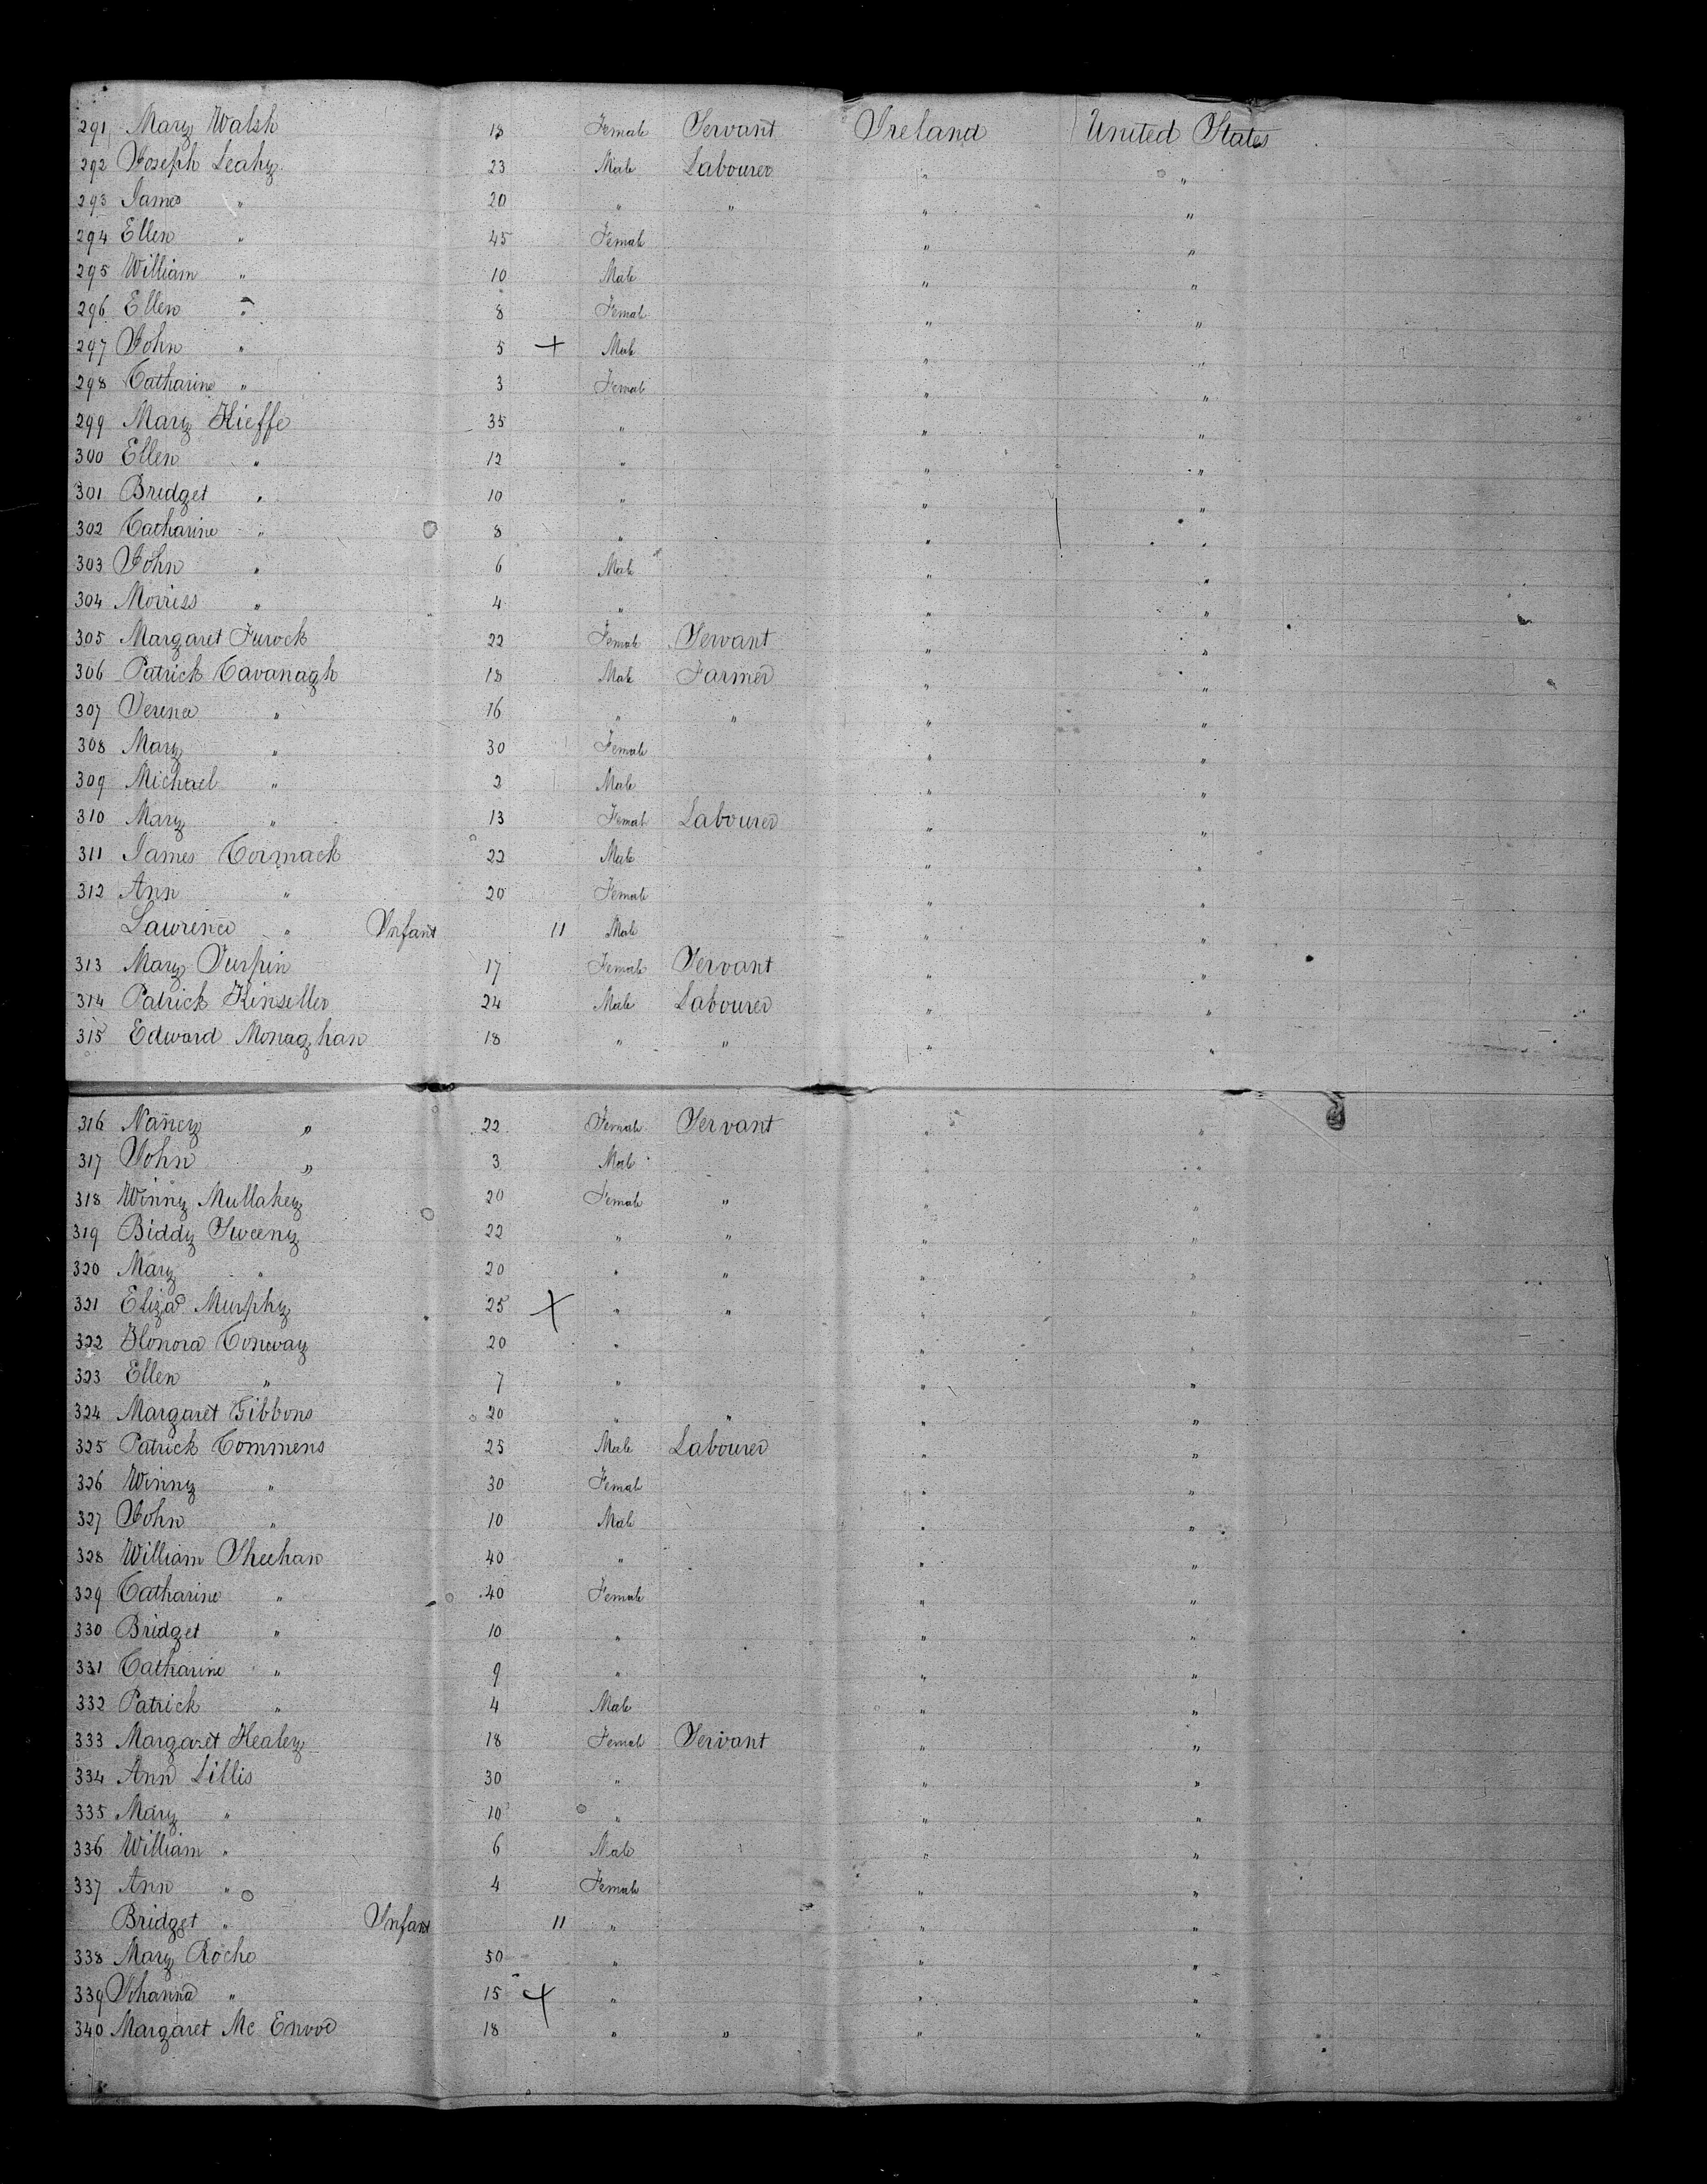 291 Mary Walsh 18 Female Servant Ireland United States
292 Joseph Leahy 23 Male Labourer " "
293 James " 20 " " " "
294 Ellen " 45 Female " "
295 William " 10 Male " "
296 Ellen " 8 Female " "
297 John " 5 + Male " "
298 Catharine " 3 Female " "
299 Mary Kieffe 35 " " "
300 Ellen " 12 " " "
301 Bridget " 10 " " "
302 Catharine " 8 " " "
303 John " 6 Male " "
304 Morriss " 4 " " "
305 Margaret Furock 22 Female Servant " "
306 Patrick Cavanagh 18 Male Farmer " "
307 " 16 " " " "
308 Mary " 30 Female " "
309 Michael " 2 Male " "
310 Mary " 13 Female Labourer " "
311 James Cormack 22 Male " "
312 Ann " 20 Female " "
Lawrence " Infant 11 Male " "
313 Mary Turpin 17 Female Servant " "
314 Patrick Kinseller 24 Male Labourer " "
315 Edward Monaghan 18 " " " "
316 Nancy " 22 Female Servant " "
317 John " 3 Male " "
318 Winny Mullakey 20 Female " " "
319 Biddy Sweeny 22 " " " "
320 Mary " 20 " " " "
321 Eliza Murphy 25 + " " " "
322 Honora Conway 20 " " "
323 Ellen " 7 " " "
324 Margaret Gibbons 20 " " " "
325 Patrick Commens 25 Male Labourer " "
326 Winny " 30 Female " "
327 John " 10 Male " "
328 William Sheehan 40 " " "
329 Catharine " 40 Female " "
330 Bridget " 10 " " "
331 Catharine " 9 " " "
332 Patrick " 4 Male " "
333 Margaret Healey 18 Female Servant " "
334 Ann Lillis 30 " " "
335 Mary " 10 " " "
336 William " 6 Male " "
337 Ann " 4 Female " "
Bridget " Infant 11 " " "
338 Mary Roche 50 " " "
339 Johanna " 15 + " " "
340 Margaret Mc 18 " " " "